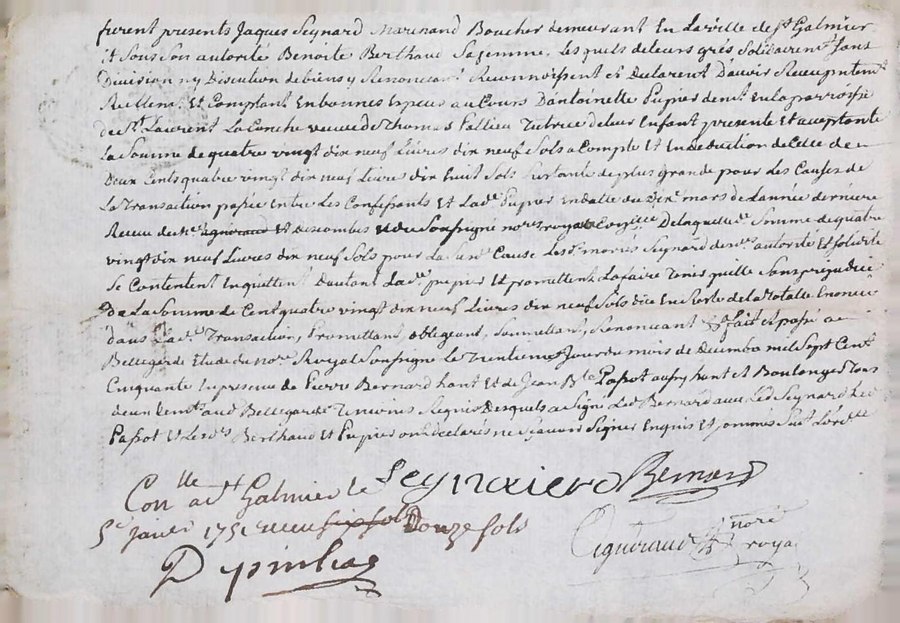 furent presents Jaques Seynard Marchand Boucher demeurant En la ville de St Galmier
et Sous Son autorité Benoite Berthaud Sa femme, Les quels de leurs grés Solidairemt Sans
Division ny Discution de biens y Renoncant Reconnoissent et Declarent D'auoir Receu pntemt
Reellemt Et Comptant En bonnes Especes au Cours D'antoinette Pupier demt En la parroisse
de St Laurent La Conche veuve de Thomas Pallieu Tutrice de leur Enfant presente Et acceptante
La Somme de quatre vingt dix neuf Livres dix neuf Sols a Compte Et En deduction de Celle de
Deux Cents quatre vingt dix neuf Livres dix huit Sols restante de plus grande pour Les Causes de
La Transaction passée Entre Les Confessants Et Lade Pupier En datte du mars de L'année derniere
Receue de Me Et du Soussigné nore royal De laquelle Somme de quatre
vingt dix neuf Livres dix neuf Sols pour La Cause Les mariés Seynard de autorité Et Solidité
Se Contentent En quittent D'autant Lade pupier Et promettent La faire Tenir quitte Sans prejudice
De La Somme de Cent quatre vingt dix neuf Livres dix neuf Sols En Reste de la Totalle Enoncée
dans Lade Transaction, Promettant, obligeant, Soumettant, Renoncant &a fait Et passé a
Bellegarde Etude du nore Royal Soussigné Le Trentieme Jour du mois de Decembre mil Sept Cent
Cinquante En presence de Pierre Bernard hant Et de Jean Bte Passot aussy hant Et Boulanger Tous
deux demt aud Bellegarde Temoins Requis Desquels a Signé Led Bernard avec Led Seynard Led
Passot Et Berthaud Et Pupier ont declarés ne Sçauoir Signer Enquis Et
Conlle a St Galmier le Seynaierd Bernard
5e janvier 1751 Receu six sols Douze sols
Depinhac
Cignoraud nore
royal